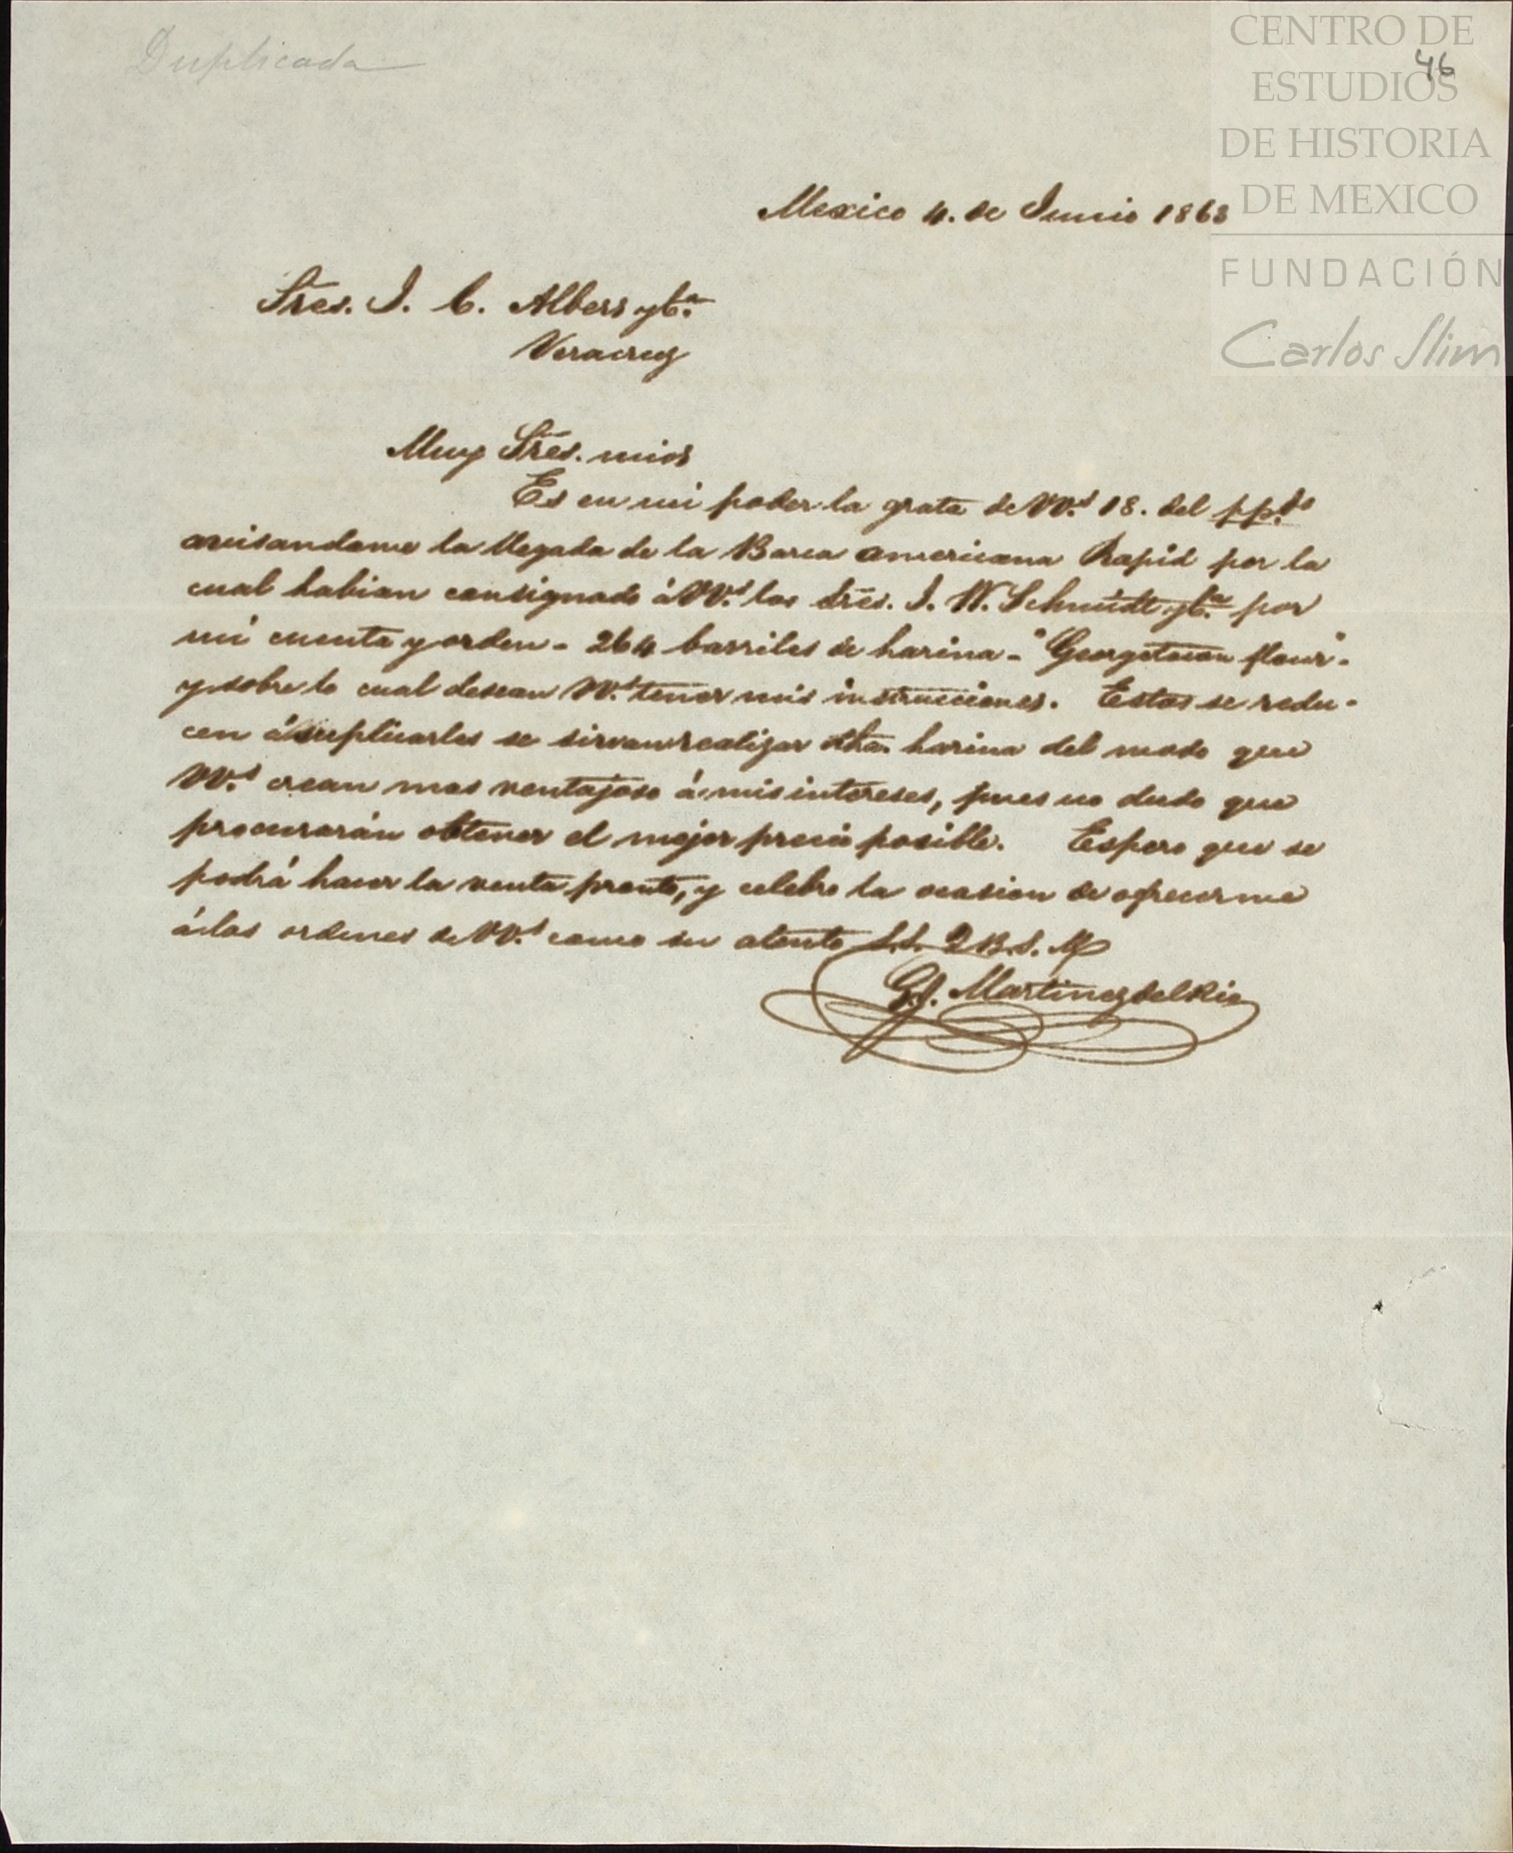 Duplicada
46
CENTRO DE
ESTUDIOS
DE HISTORIA
DE MEXICO
FUNDACIÓN
Carlos Slim
Mexico 4. de Junio 1868
Sres. J. C. Albers y Cª.
Veracruz
Muy Sres. mios
Es en mi poder la grata de VV.s 18. del pp.do
avisandome la llegada de la Barca americana Rapid por la
cual habian consignado á VV.s los Sres. J. W. Schmidt y Cª. por
mi cuenta y orden - 264 barriles de harina - "Georgetown flour" -
y sobre lo cual desean VV.s tener mis instrucciones. Estas se redu-
cen á suplicarles se sirvan realizar dha. harina del modo que
VV.s crean mas ventajoso á mis intereses, pues no dudo que
procurarán obtener el mejor precio posible. Espero que se
podrá hacer la venta pronto, y celebro la ocasion de ofrecerme
á las ordenes de VV.s como su atento S.S. Q B. S. M
G. J. Martinez del Rio